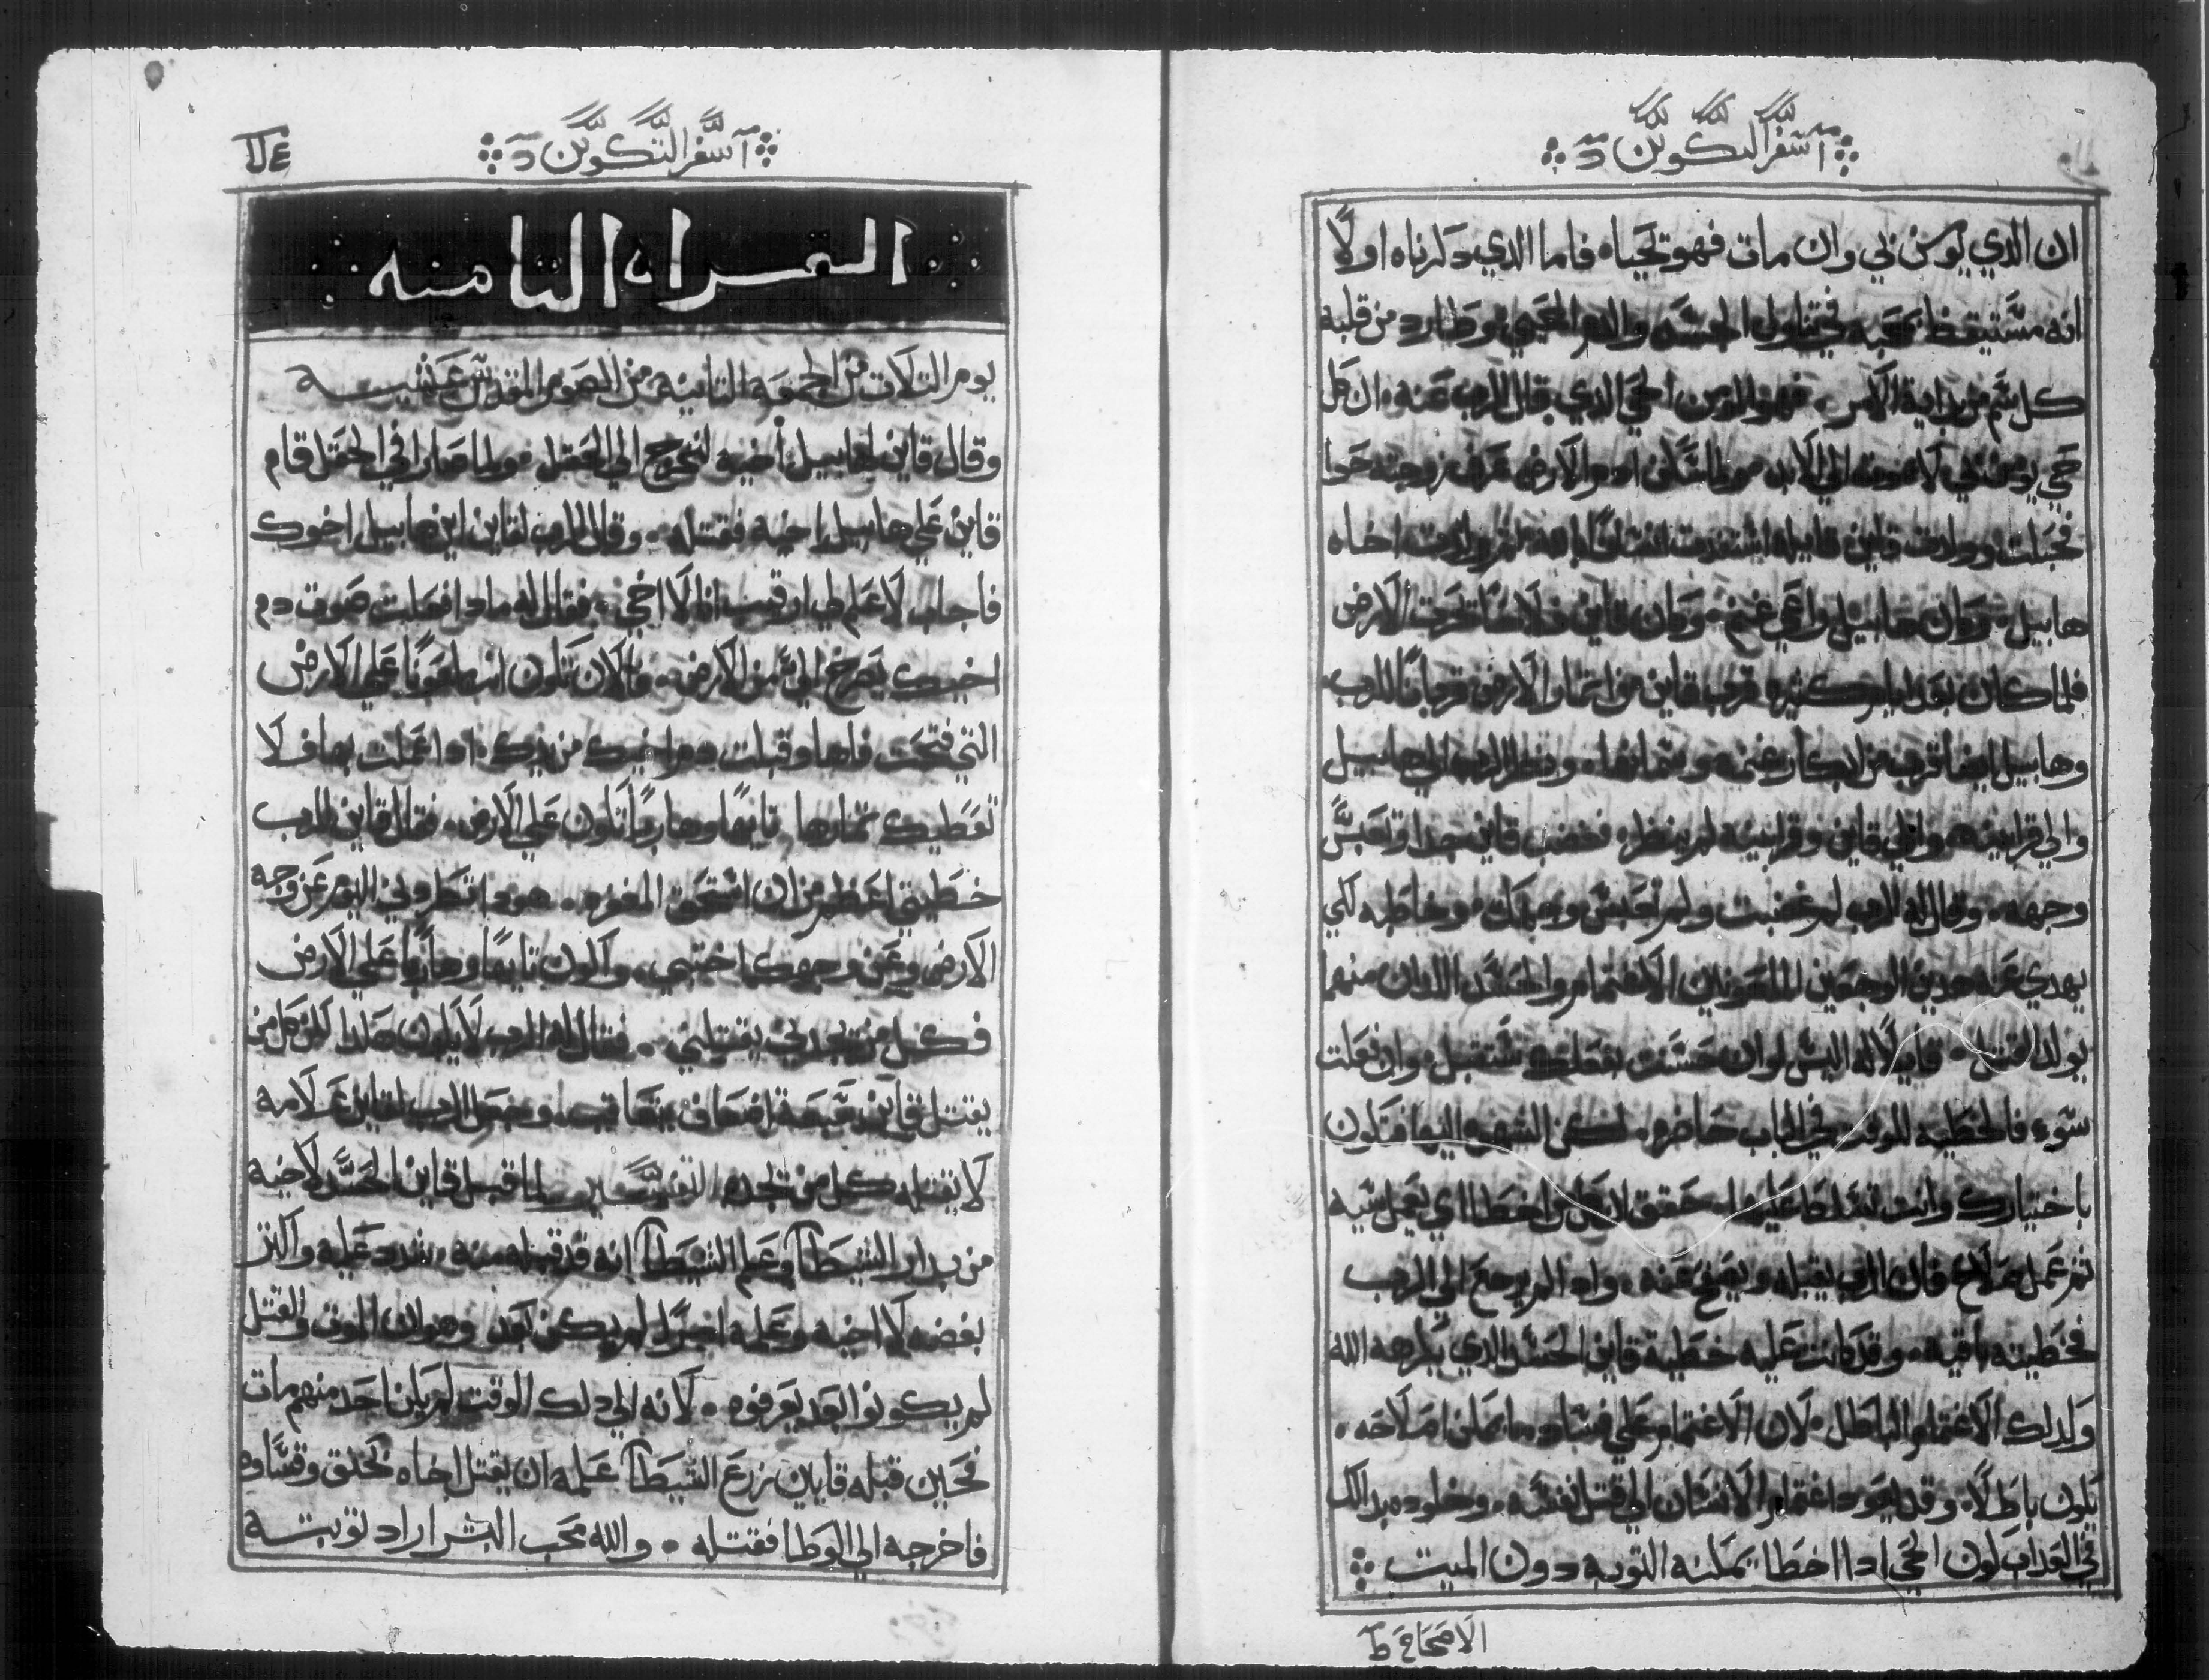 سفر التكوين
ان الذي يومن بي وان مات فهو يحياه فاما الذي دكرناه اولاً
انه مستيقظ نحبه في تناول الجسد والدم المحيي وطارد من قلبه
كل شر من بداية الامر. فهو المومن الحي الذي قال الرب عنه. ان كل
حي يومن بي لا يموت الي الابد ولما سكن ادم الارض عرف زوجته حوا
فحبلت وولدت قاين قايله استفدت انسانًا لله ثم ولدت اخاه
هابيل. وكان هابيل راعي غنم. وكان قاين فلاحًا يحرث الارض
فلما كان بعد ايام كثيره قرب قاين من اتمار الارض قربانًا للرب
وهابيل ايضا قرب من ابكار غنمه وسمانها. ونظر الرب الي هابيل
والي قرابينه والي قاين وقرابينه لم ينظر. فغضب قاين جدا وتعبس
وجهه. وقال له الرب لم غضبت ولم تعبس وجهك. وخاطبه لكي
يهدي عنه هدين الوجعين الملعونين الاغتمام والحسد اللدان منهما
يولد القتل. قايلًا له اليس لو ان حسنت بعملك ستقبل. وان فعلت
سوء فالخطيه للوقت في الباب حاضره. لكن الشهوه اليها فتكون
باختيارك وانت تتسلط عليها. حقق لان كل من اخطا اي يعمل شيه
تم عمل صلاح فان الرب يقبله ويصفح عنه. وادا لم يرجع الي الرب
فخطيته باقيه. وقد كانت عليه خطية قاين الحسد الدي يكرهه الله
وكدلك الاغتمام الباطل. لان الاغتمام علي فساد ما يمكن اصلاحه.
يكون باطلًا. وقد يقود اغتمام الانسان الي قتل نفسه. وخلوده بدالك
في العداب لكون الحي ادا اخطا تمكنه التوبه دون الميت
الاصحاح ط
سفر التكوين
القراه التامنه
يوم التلات من الجمعه التانيه من الصوم المقدس عشيه
وقال قاين لهابيل اخيه لنخرج الي الحقل. ولما صارا في الحقل قام
قاين علي هابيل اخيه فقتله. وقال الرب لقاين اين هابيل اخوك
فاجاب لا علم لي ارقيب انا لااخي. فقال له مادا فعلت صوت دم
اخيك يصرخ الي من الارض. والان تكون انت ملعونًا علي الارض
التي فتحت فاها وقبلت دم اخيك من يدك. ادا عملت بها ف لا
تعطيك تمارها تايهًا وهاربًا تكون علي الارض. فقال قاين للرب
خطيتي اعظم من ان استحق المغفره. هودا تطردني اليوم عن وجه
الارض وعن وجهك اختبي. واكون تايهًا وهاربًا علي الارض
فكل من يجدني يقتلني. فقال له الرب لا يكون هكدا لكن كل من
يقتل قاين سبعة اضعاف يعاقب. وجعل الرب لقاين علامه
لا يقتله كل من يجده التفسير لما قبل قاين الحسد لاخيه
من بدار الشيطان وعلم الشيطان انه قد قبله منه. شدد عليه واكتر
بغضه لااخيه وعلمه امرًا لم يكن بعد وهو ان الموت والقتل
لم يكونوا بعد يعرفوه. لانه الي دلك الوقت لم يكن احد منهم مات
فحين قبله قاين زرع الشيطان علمه ان يقتل اخاه بخنق وقساوه
فاخرجه الي الوطا فقتله. والله محب البشر اراد توبته